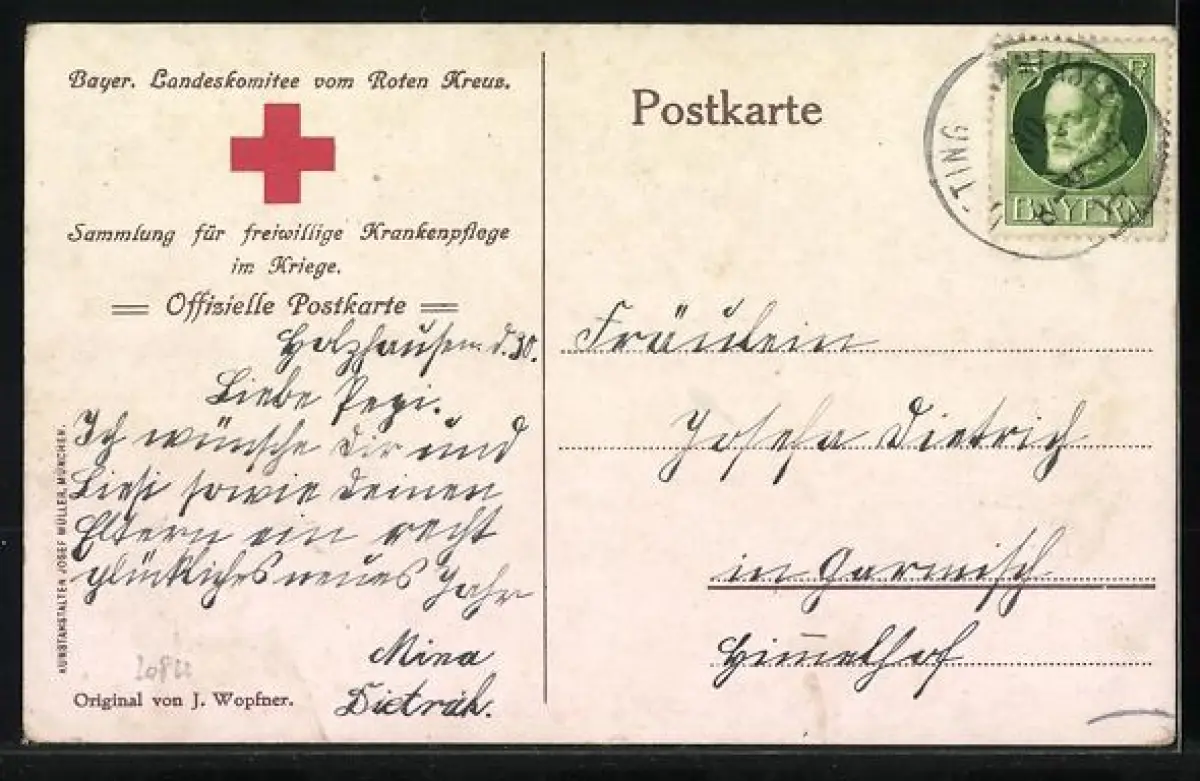 Bayer. Landeskomitee vom Roten Kreuz.
Sammlung für freiwillige Krankenpflege
im Kriege.
Offizielle Postkarte
Holzhausen d. 30.
Liebe Pepi.
Ich wünsche Dir und
Liesi sowie Deinen
Eltern ein recht
glückliches neues Jahr
Mina
Dietrich.
Original von J. Wopfner.
KUNSTANSTALTEN JOSEF MÜLLER, MÜNCHEN.
Postkarte
BAYERN
Fräulein
Josefa Dietrich
in Garmisch
Himelhof